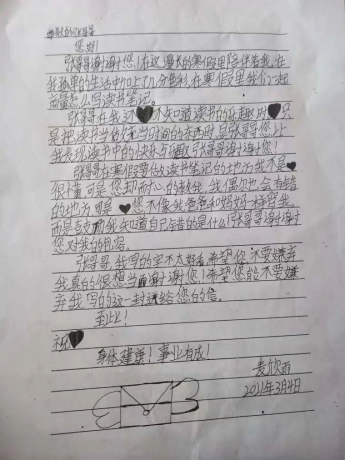 敬爱的张哥哥
您好!
张哥哥谢谢您!在这漫长的寒假里陪伴着我,在
我孤单的生活中加上了几分色彩,在寒假里我们一起
商量怎么写读书笔记。
张哥哥在我对 不知道读书的乐趣时 只
是把读书当做 当时间的东西时是张哥哥您让
我发现读书中的快乐与趣 张哥哥谢谢您!
张哥哥在寒假要做读书笔记的地方我不是
很懂,可是您却耐心的教我,我偶尔也会有错
的地方,可是 您不像我爸爸和妈妈一样骂我,
而是 我知道自己错的是什么!张哥哥谢谢
您对我的包容。
张哥哥,我写的字不太好看希望您不要嫌弃
我真的很想当面谢谢您!希望您能不要嫌
弃我写的这一封送给您的信。
至此!
祝
身体健康!事业有成!
麦欣雨
2021年3月4日